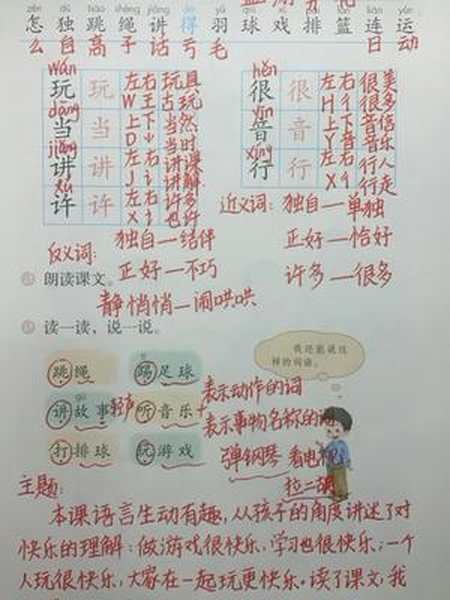 怎 独 跳 绳 讲 得 羽 球 戏 排 篮 连 运
么 自 高 子 话 亏 毛 日 动
wán
玩 玩 左右 玩具
W 王 古玩
dāng
当 当 上下 当然
D 当时
jiǎng
讲 讲 左右 讲课
J 讠 讲解
xǔ
许 许 左右 许多
X 讠 也许
hěn
很 很 左右 很美
H 彳 很多
yīn
音 音 上下 音信
Y 音 音乐
xíng
行 行 左右 行人
X 彳 行走
近义词: 独自—单独
正好—恰好
许多—很多
反义词: 独自—结伴
正好—不巧
静悄悄—闹哄哄
朗读课文。
读一读,说一说。
我还能说这
样的词语。
跳绳 踢足球
讲故事 轻声 听音乐
打排球 玩游戏
表示动作的词
+
表示事物名称的词
弹钢琴 看电视
拉二胡
主题:
本课语言生动有趣,从孩子的角度讲述了对
快乐的理解:做游戏很快乐,学习也很快乐;一个
人玩很快乐,大家在一起玩更快乐。读了课文,我